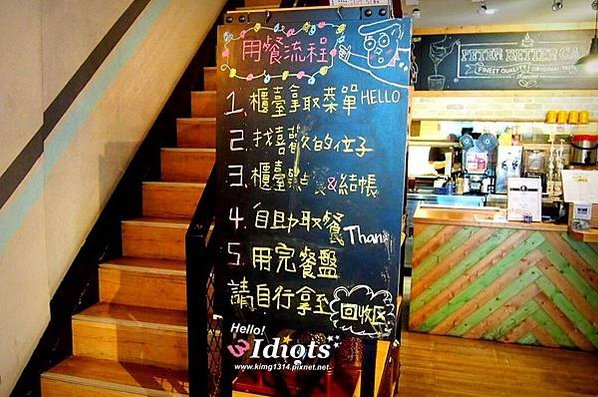 用餐流程
1. 櫃臺拿取菜單 HELLO
2. 找喜歡的位子
3. 櫃臺點餐&結帳
4. 自助取餐 Thank
5. 用完餐盤
請自行拿至 回收区
PETER BETTER CAFE
FINEST QUALITY
Hello!
3 Idiots
www.kimg1314.pixnet.net